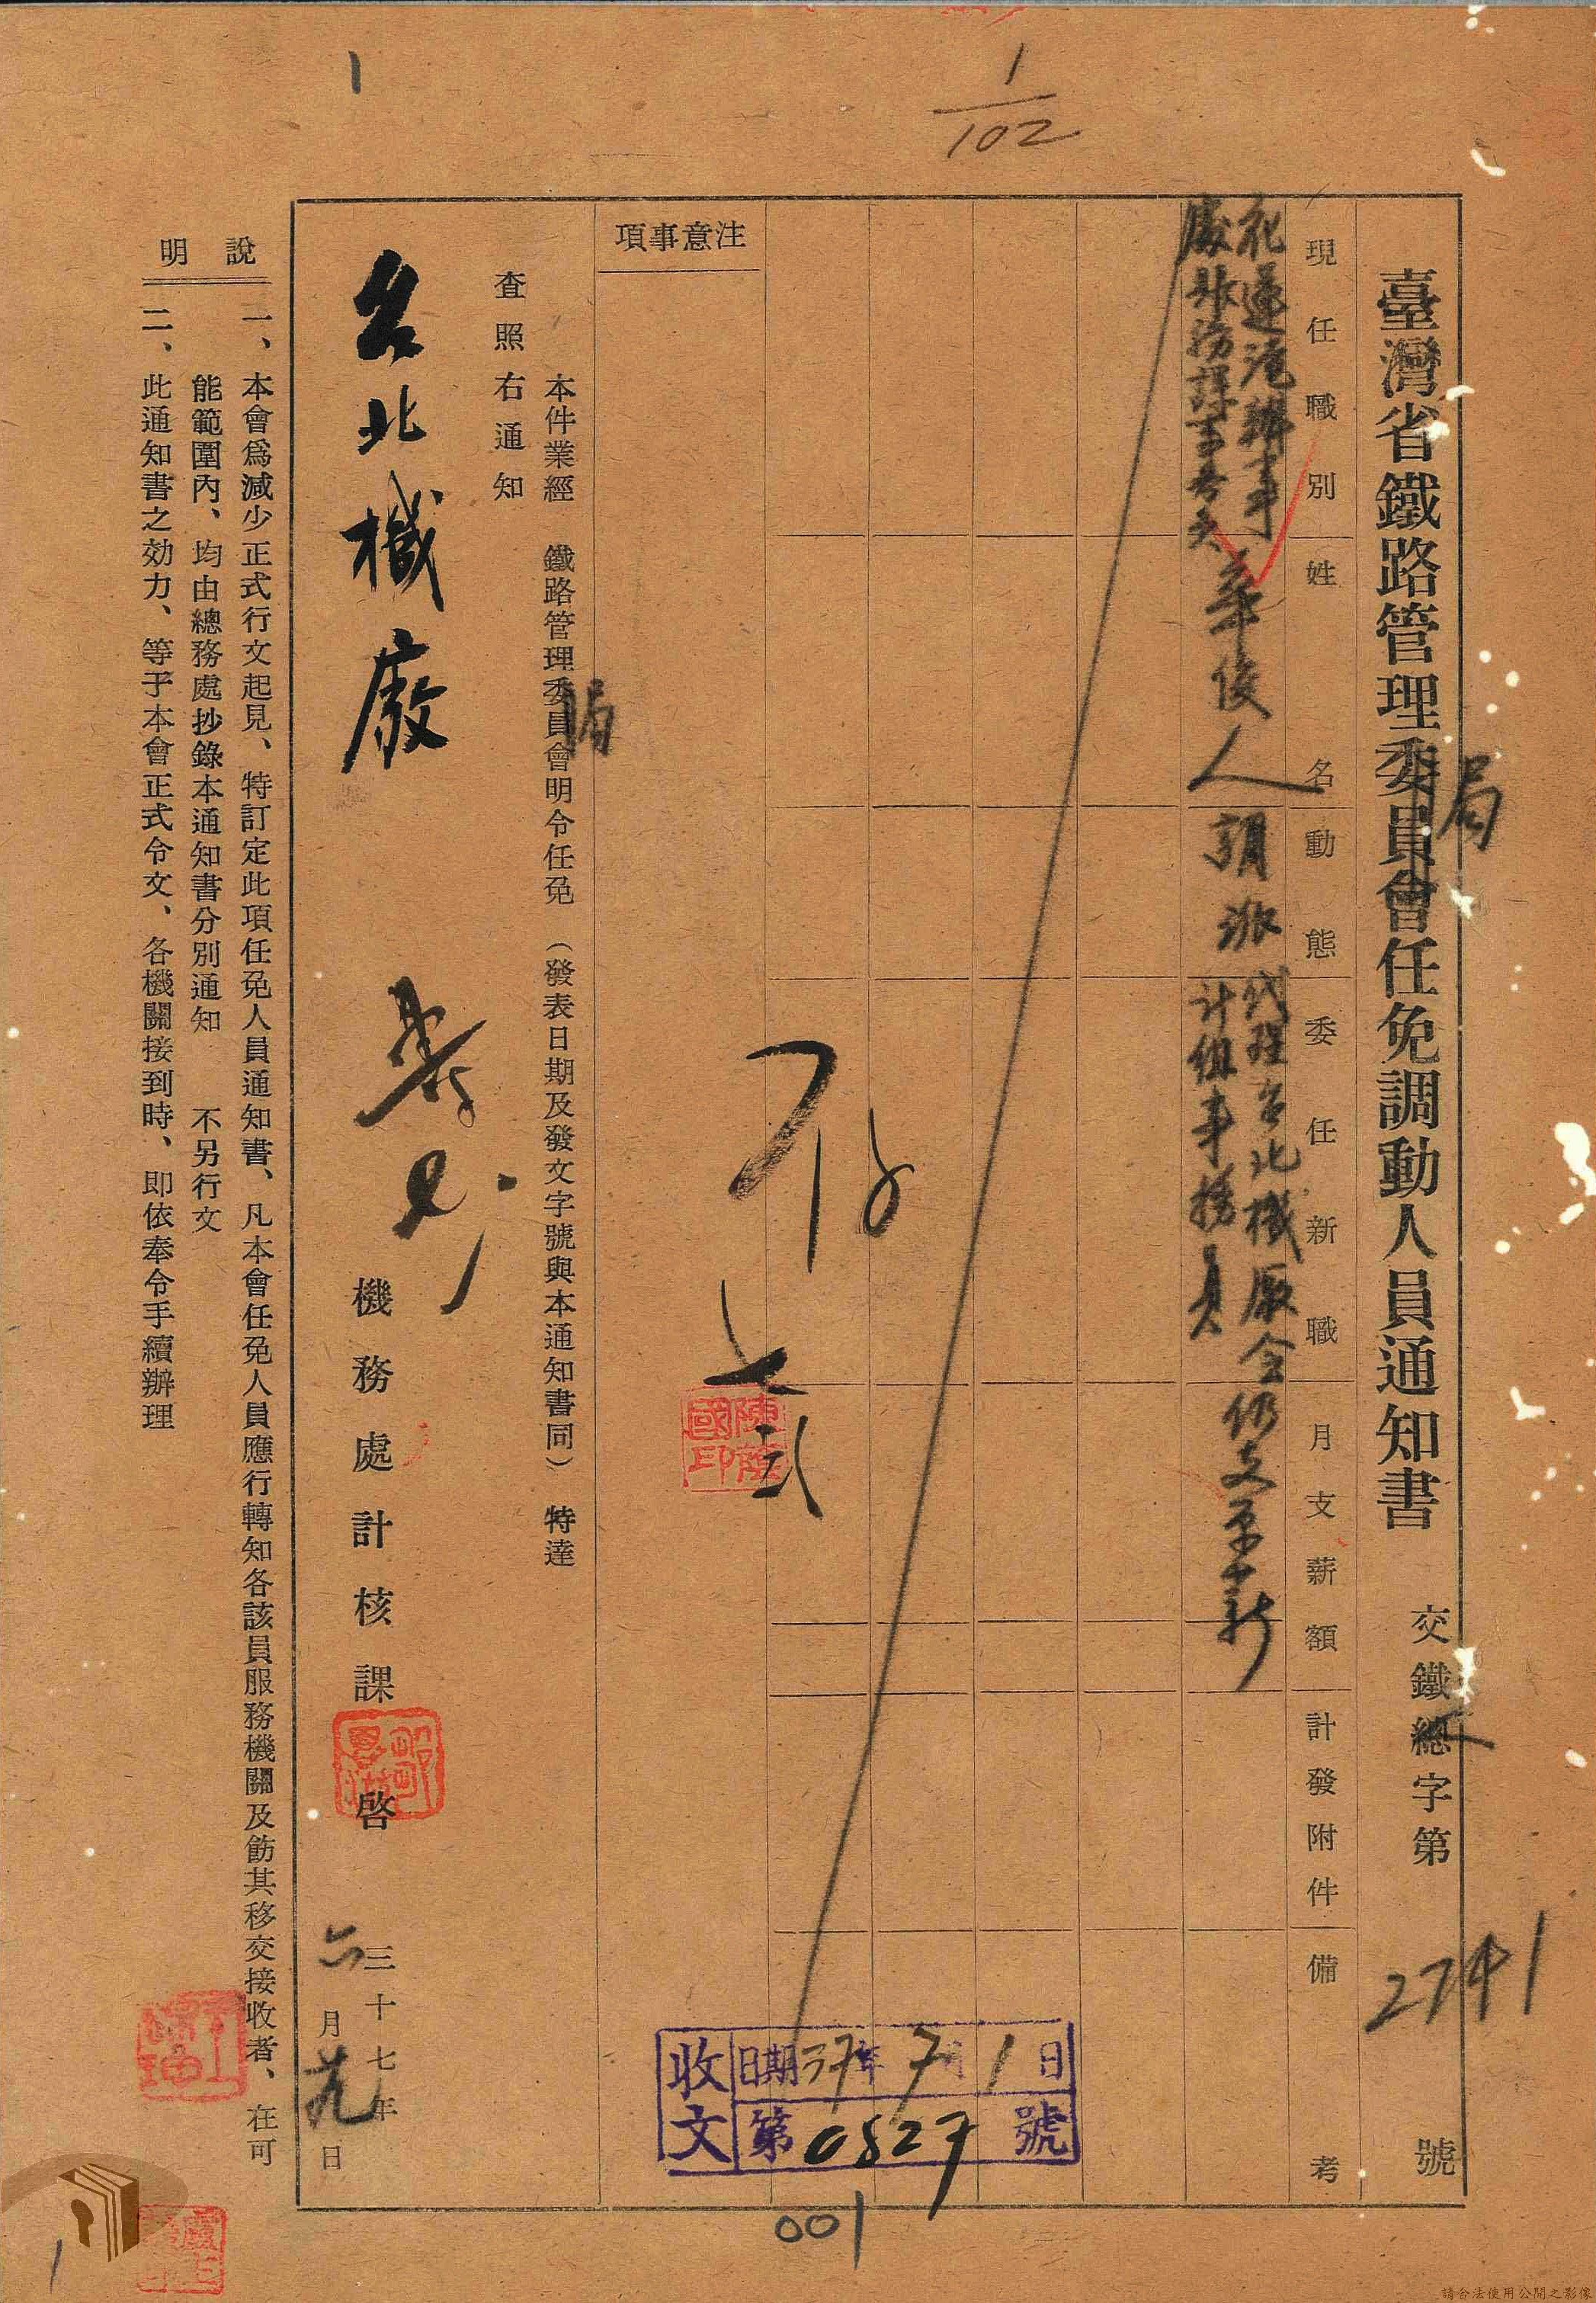 1
1/102
臺灣省鐵路管理委員會任免調動人員通知書
局
交鐵總字第2741號
現任職別
姓名
動態
委任新職
月支薪額
計發附件
備考
花蓮港辦事
處財務課
華俊人
調派
代理台北機廠會
計組事務員
仍支原薪
注意事項
存
陳蔭國印
本件業經 鐵路管理委員會明令任免（發表日期及發文字號與本通知書同）特達
局
查照右通知
台北機廠
機務處計核課 啓
三十七年
六月 日
說明
一、本會爲減少正式行文起見、特訂定此項任免人員通知書、凡本會任免人員應行轉知各該員服務機關及飭其移交接收者、在可
能範圍內、均由總務處抄錄本通知書分別通知 不另行文
二、此通知書之効力、等于本會正式令文、各機關接到時、即依奉令手續辦理
收文
日期37年7月1日
第0527號
001
1
請合法使用公開之影像